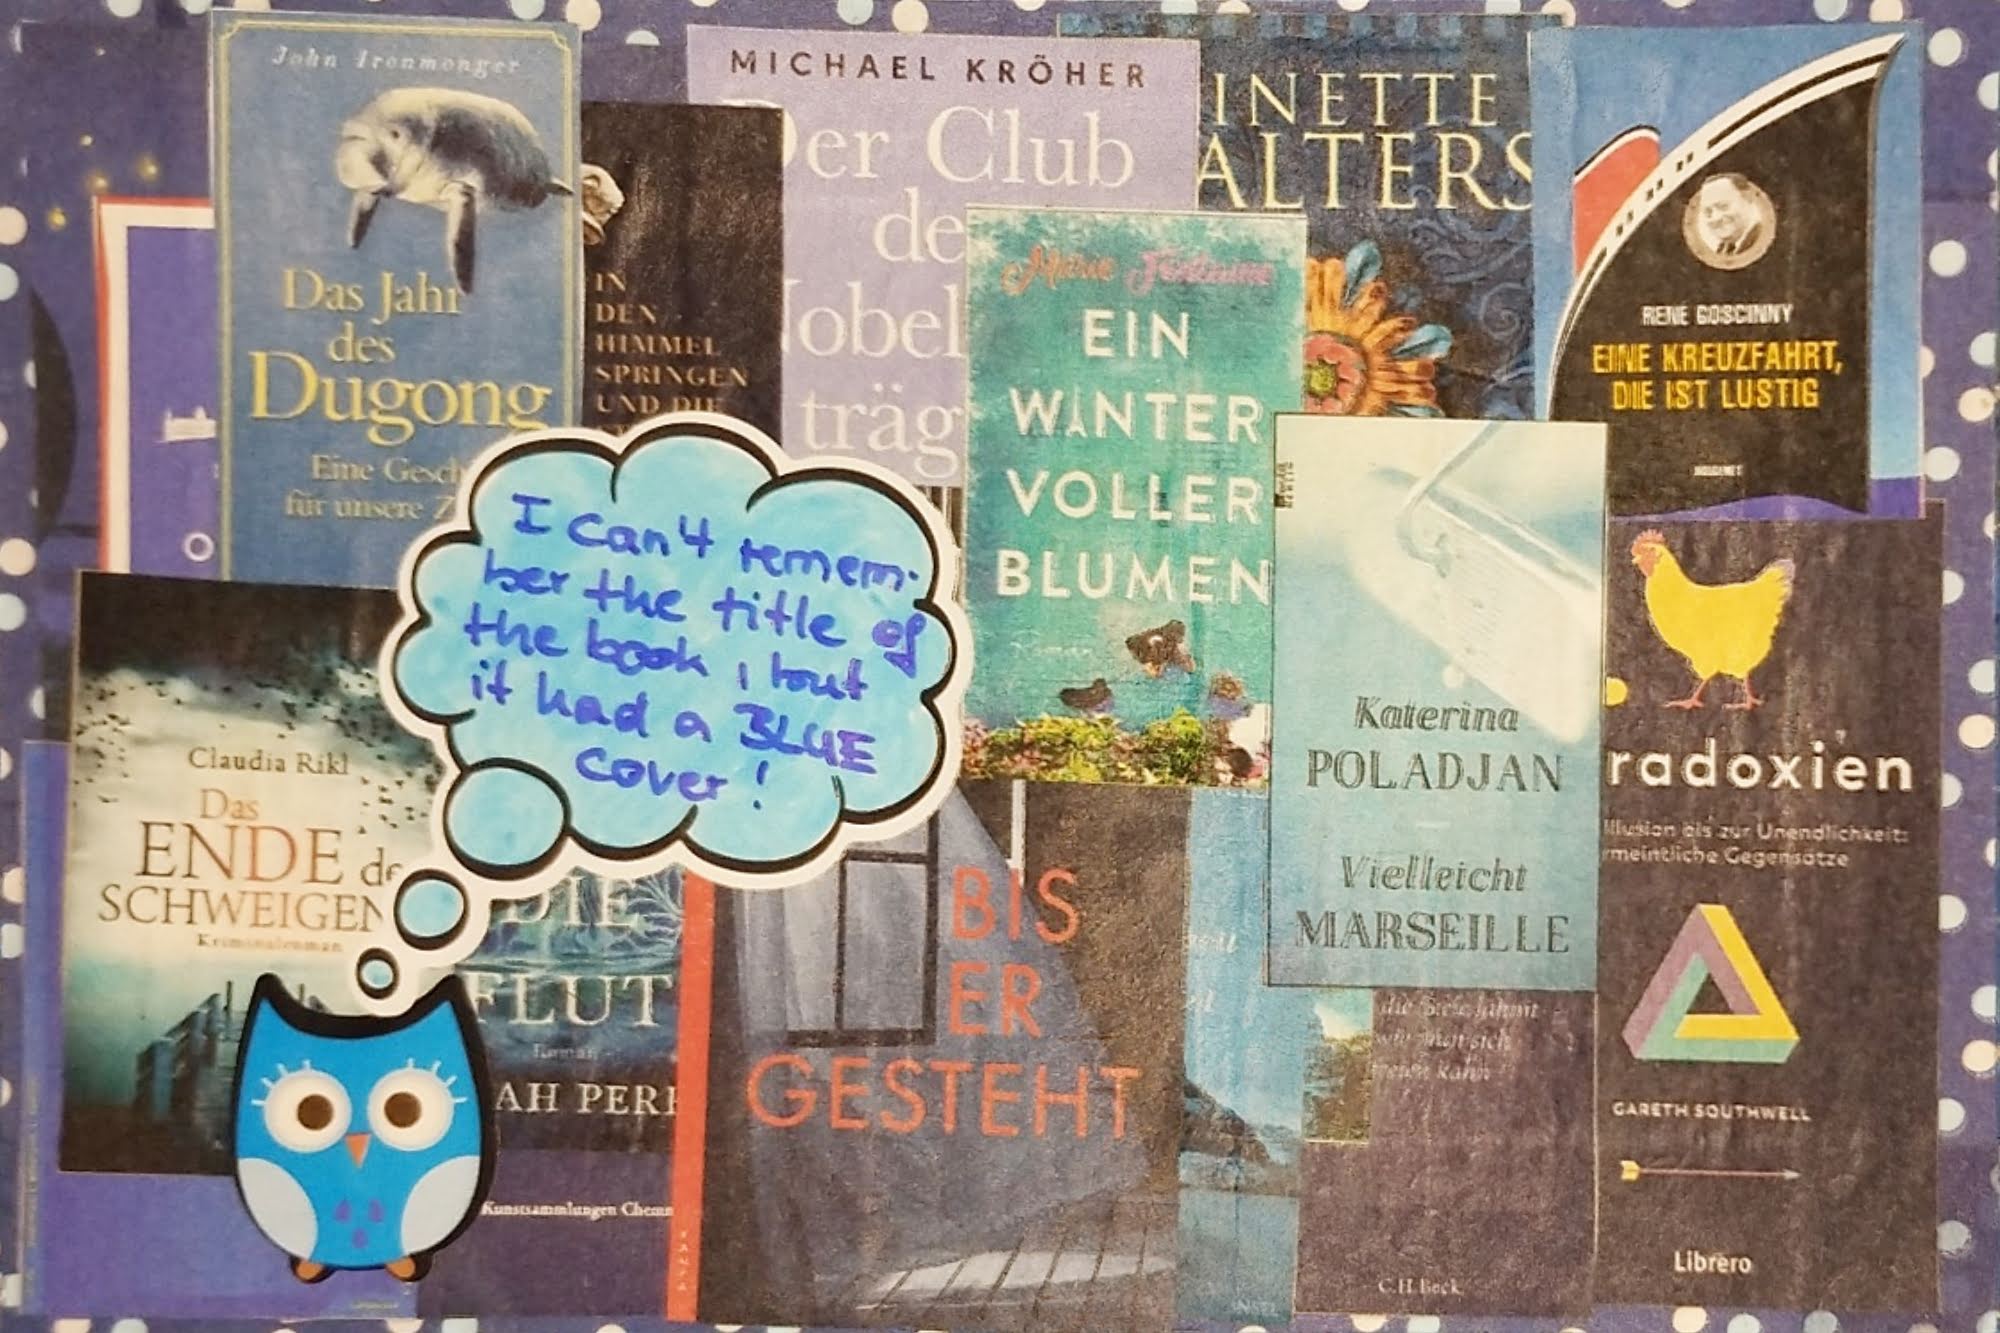 John Ironmonger
Das Jahr
des
Dugong
Eine Gesch
für unsere Z
IN
DEN
HIMMEL
SPRINGEN
UND DIE
MICHAEL KRÖHER
Der Club
de
Nobel
träg
INETTE
ALTERS
RENE GOSCINNY
EINE KREUZFAHRT,
DIE IST LUSTIG
EIN
WINTER
VOLLER
BLUMEN
Roman
I can't remem-
ber the title of
the book, but
it had a BLUE
cover!
Katerina
POLADJAN
Vielleicht
MARSEILLE
radoxien
Illusion bis zur Unendlichkeit:
rmeintliche Gegensätze
GARETH SOUTHWELL
Librero
Claudia Rikl
Das
ENDE de
SCHWEIGEN
Kriminalroman
DIE
FLUT
Roman
AH PER
Kunstsammlungen Chemn
BIS
ER
GESTEHT
KAMPA
INSEL
C.H.Beck